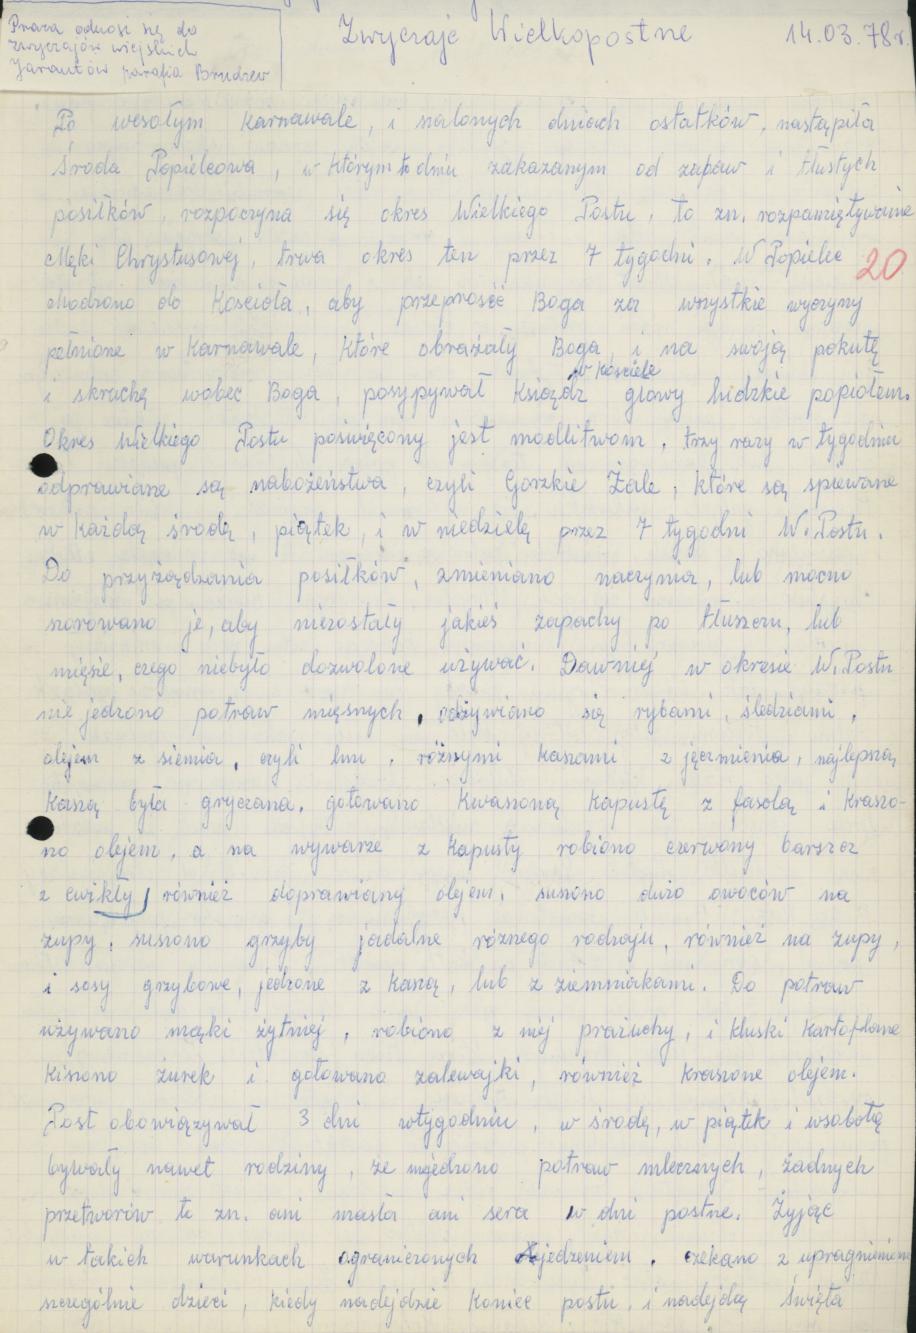 Praca odnosi się do
zwyczajów wiejskich
Jarantów parafia Brudzew
Zwyczaje Wielkopostne
14.03.78r.
Po wesołym karnawale, i szalonych dniach ostatków, nastąpiła
Środa Popielcowa, w którym to dniu zakazanym od zabaw i tłustych
posiłków, rozpoczyna się okres Wielkiego Postu, to zn. rozpamiętywanie
Męki Chrystusowej, trwa okres ten przez 7 tygodni. W Popielec
20
chodzono do Kościoła, aby przeprosić Boga za wszystkie wyczyny
pełnione w karnawale, które obrażały Boga, i na swoją pokutę
w kościele
i skruchę wobec Boga, posypywał Ksiądz głowy ludzkie popiołem.
Okres Wielkiego Postu poświęcony jest modlitwom, trzy razy w tygodniu
odprawiane są nabożeństwa, czyli Gorzkie Żale, które są śpiewane
w każdą środę, piątek, i w niedzielę przez 7 tygodni W. Postu.
Do przyrządzania posiłków, zmieniano naczynia, lub mocno
szorowano je, aby niezostały jakieś zapachy po tłuszczu, lub
mięsie, czego niebyło dozwolone używać. Dawniej w okresie W. Postu
nie jedzono potraw mięsnych, odżywiano się rybami, śledziami,
olejem z siemia, czyli lnu, różnymi kaszami z jęczmienia, najlepszą
kaszą była gryczana, gotowano kwaszoną kapustę z fasolą i kraszo-
no olejem, a na wywarze z kapusty robiono czerwony barszcz
z ćwikły, również doprawiany olejem, suszono dużo owoców na
zupy, suszono grzyby jadalne różnego rodzaju, również na zupy,
i sosy grzybowe, jedzone z kaszą, lub z ziemniakami. Do potraw
używano mąki żytniej, robiono z niej prażuchy, i kluski kartoflane
kiszono żurek i gotowano zalewajki, również kraszone olejem.
Post obowiązywał 3 dni wtygodniu, w środę, w piątek i wsobotę
bywały nawet rodziny, że niejedzono potraw mlecznych, żadnych
przetworów to zn. ani masła ani sera w dni postne. Żyjąc
w takich warunkach ograniczonych jedzeniem, czekano z upragnieniem
szczególnie dzieci, kiedy nadejdzie koniec postu, i nadejdą Święta